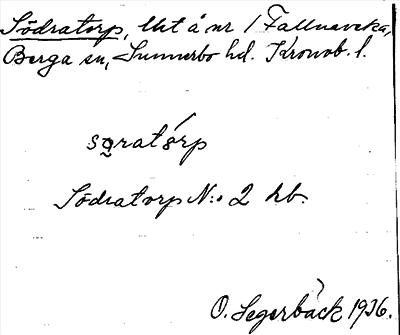 Södratorp, lht å nr 1 Fallnaveka,
Berga sn, Sunnerbo hd. Kronob. l.
sǫratórp
Södratorp N:o 2 hb.
O. Segerbäck 1936.